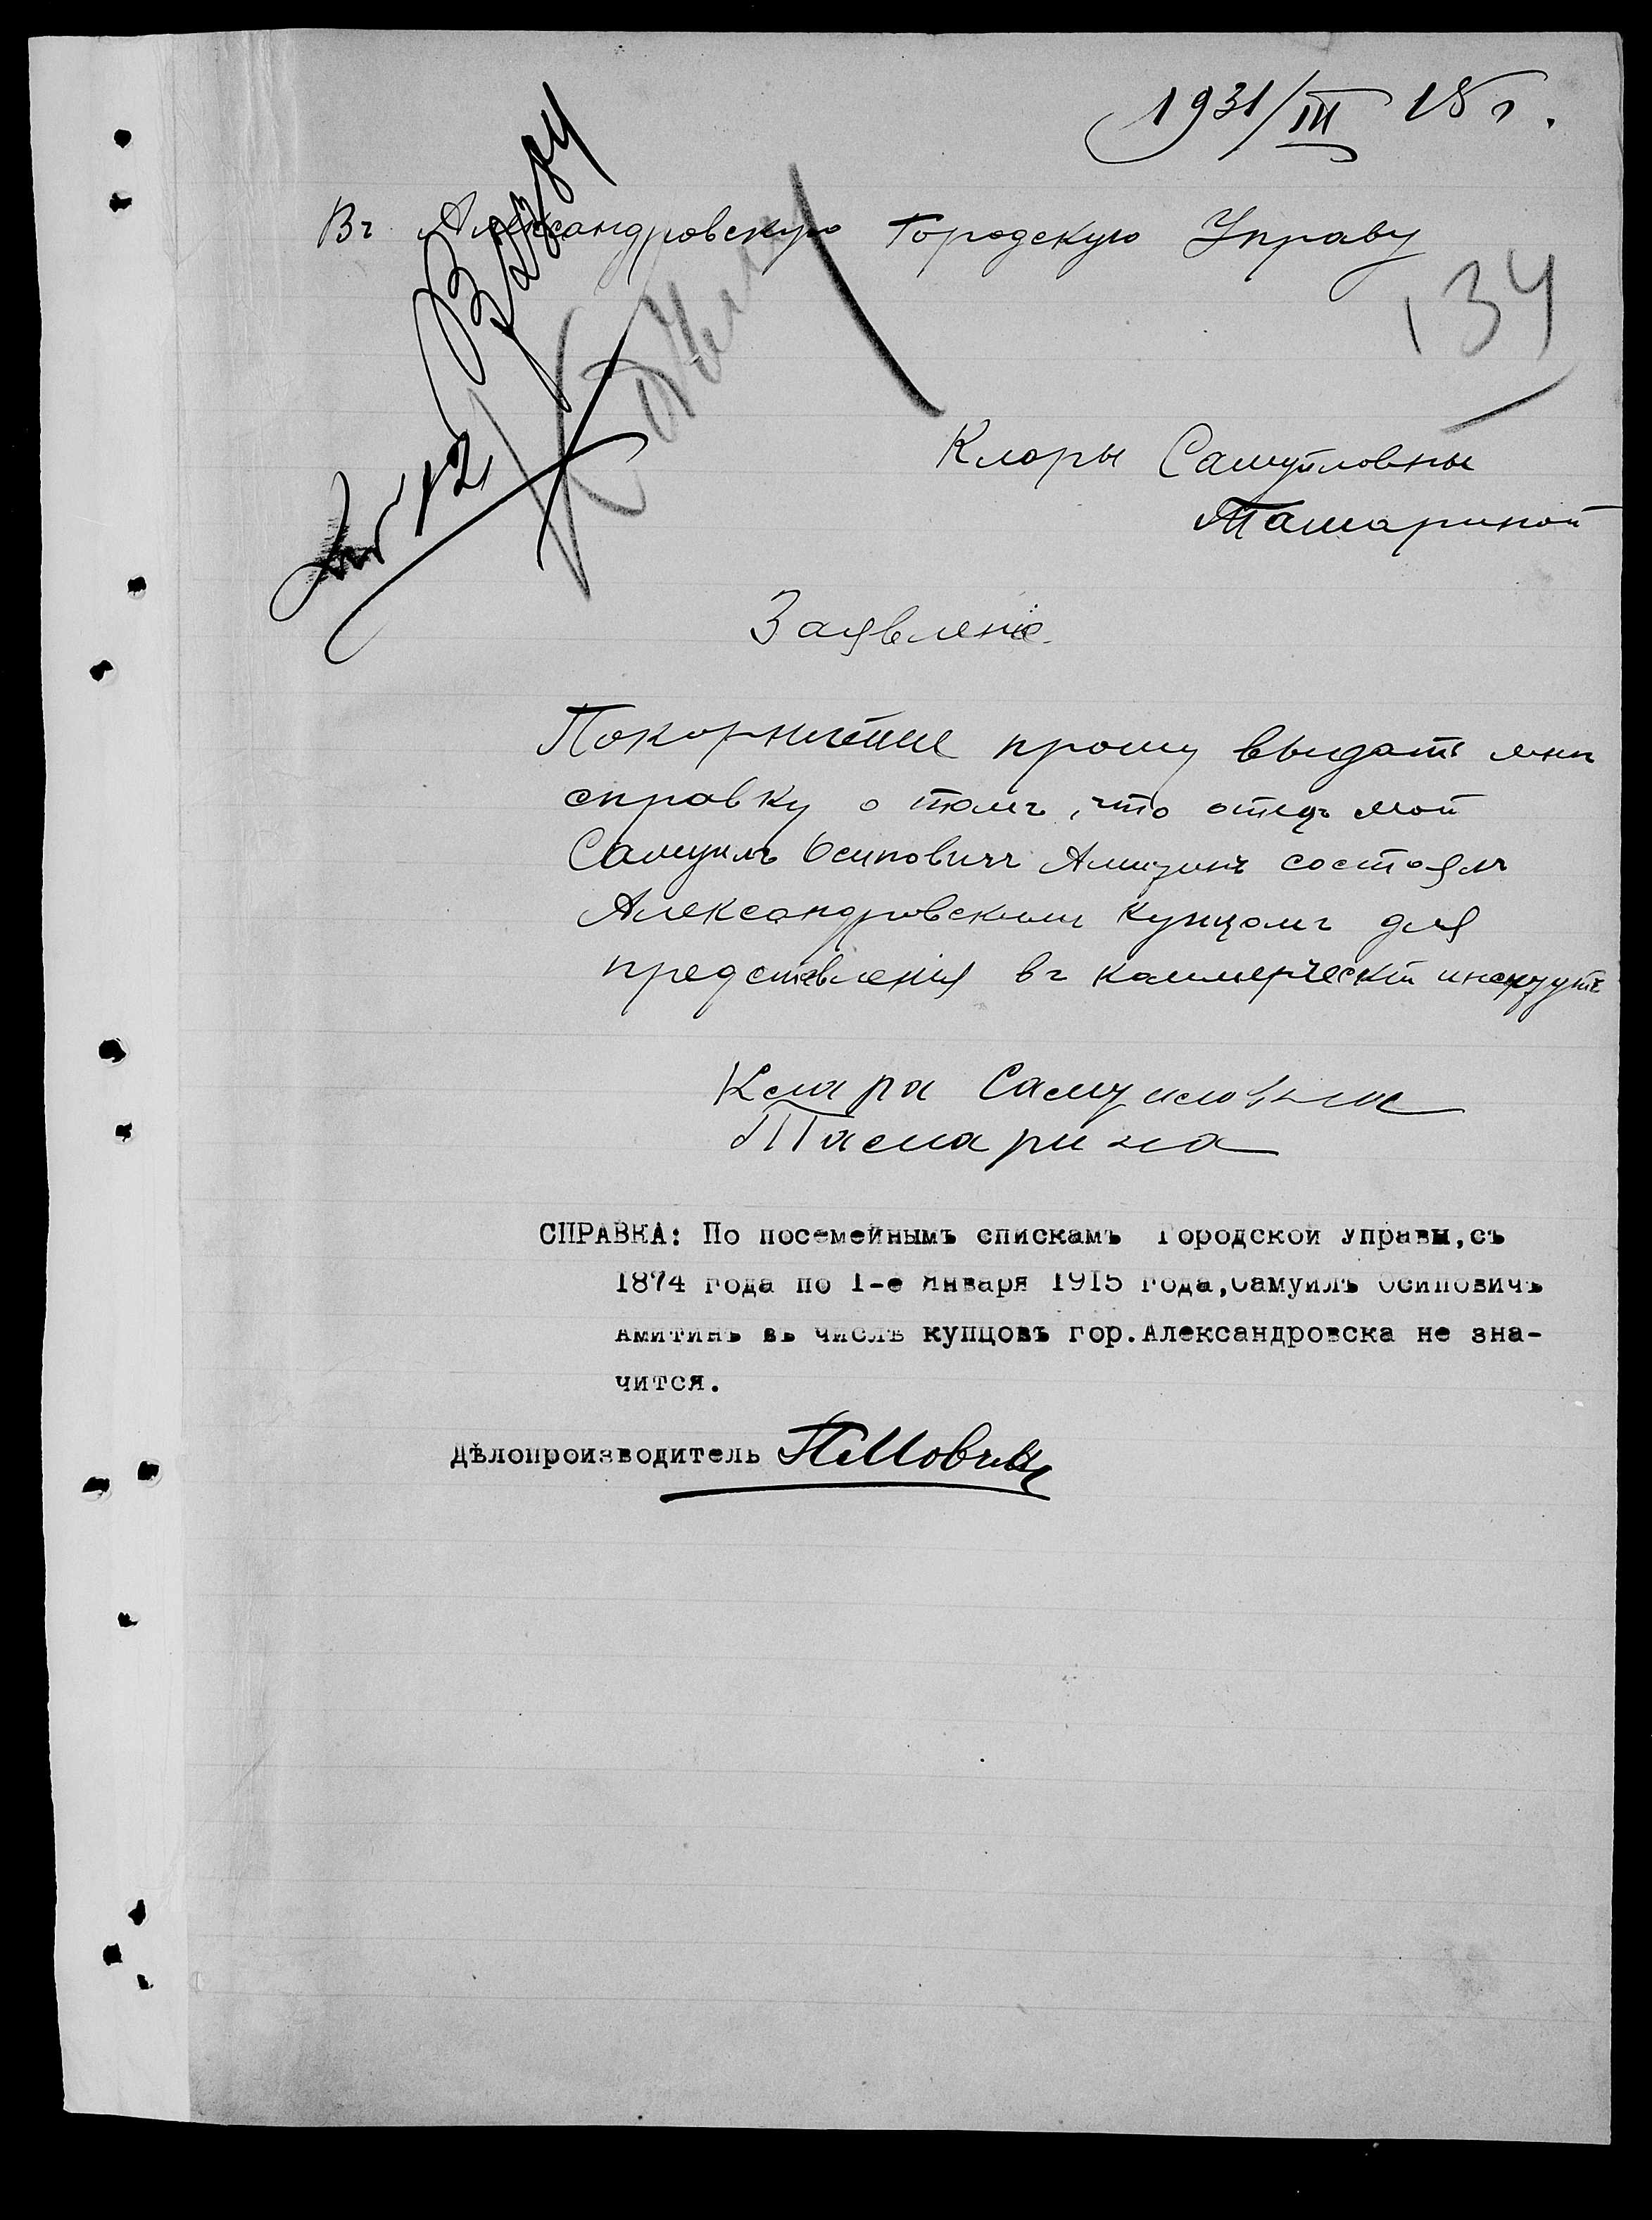 1931/III 15 г.
Въ Александровскую Городскую Управу
134
Клары Самуиловны
Тамариной
Заявленіе.
Покорнѣйше прошу выдать мнѣ
справку о томъ, что отецъ мой
Самуилъ Осиповичъ Амитинъ состоялъ
Александровскимъ купцомъ для
представленія въ коммерческій институтъ
Клара Самуиловна
Тамарина
СПРАВКА: По посемейнымъ спискамъ Городской Управы,съ
1874 года по 1-е Января 1915 года,Самуилъ Осиповичъ
Амитинъ въ числѣ купцовъ гор.Александровска не зна-
чится.
Дѣлопроизводитель